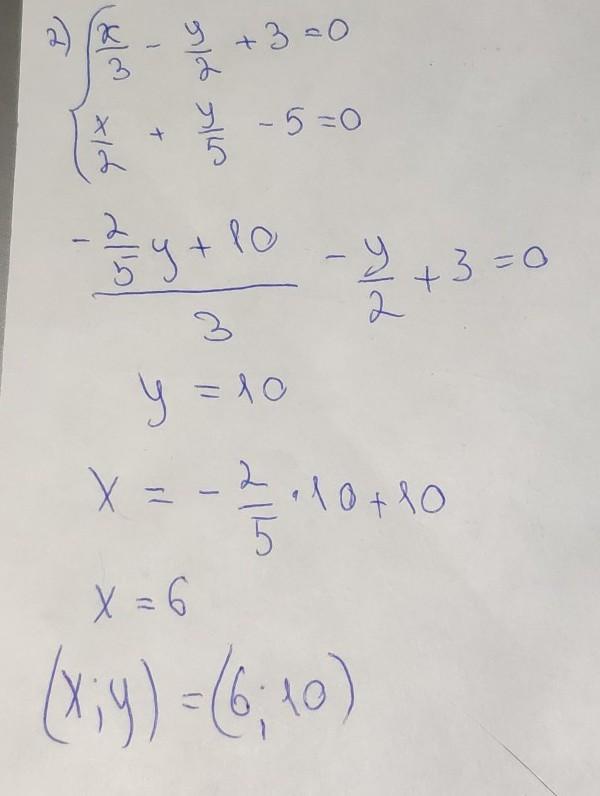 2) { x/3 - y/2 + 3 = 0
x/2 + y/5 - 5 = 0
(-2/5 y + 10)/3 - y/2 + 3 = 0
y = 10
x = -2/5 · 10 + 10
x = 6
(x; y) = (6; 10)